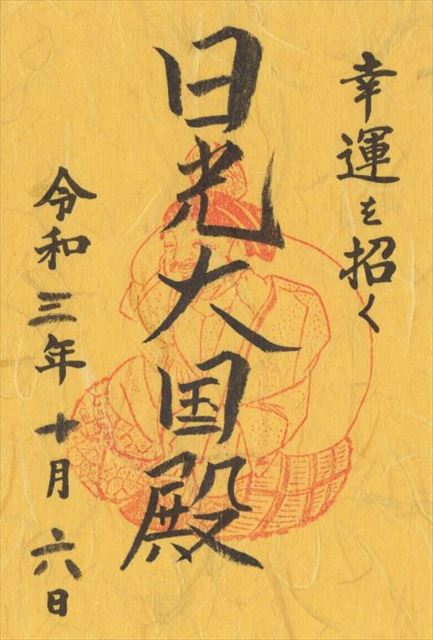 幸運を招く
日光大国殿
令和三年十月六日